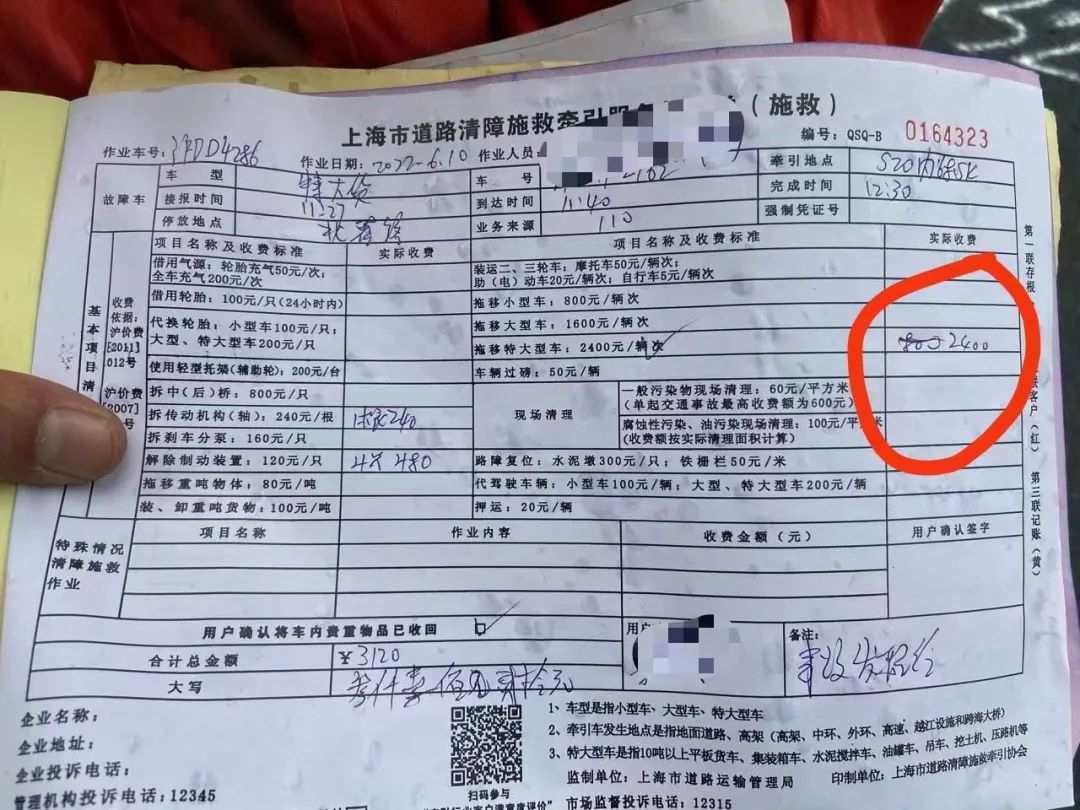 上海市道路清障施救牵引服务 （施救）
编号：QSQ-B 0164323
作业车号： D4286 作业日期：2022-6.10 作业人员：
故障车 车型 特大货 车号 牵引地点 S20内
接报时间 11:27 到达时间 11:40 完成时间 12:30
停放地点 业务来源 110 强制凭证号
项目名称及收费标准 实际收费 项目名称及收费标准 实际收费
基本项目清
收费依据：沪价费[2011]012号
沪价费[2007] 号
借用气源：轮胎充气50元/次；
全车充气200元/次；
装运二、三轮车：摩托车50元/辆次；
助（电）动车20元/辆次；自行车5元/辆次
借用轮胎：100元/只(24小时内)
拖移小型车：800元/辆次
代换轮胎：小型车100元/只；
大型、特大型车200元/只
拖移大型车：1600元/辆次
拖移特大型车：2400元/辆次 800 2400
使用轻型托架(辅助轮)：200元/台
车辆过磅：50元/辆
拆中（后）桥：800元/只
现场清理
一般污染物现场清理：60元/平方米
(单起交通事故最高收费额为600元)
拆传动机构(轴)：240元/根 1根240
腐蚀性污染、油污染现场清理：100元/平方米
(收费额按实际清理面积计算)
拆刹车分泵：160元/只
解除制动装置：120元/只 4只 480
路障复位：水泥墩300元/只；铁栅栏50元/米
拖移重吨物体：80元/吨
代驾驶车辆：小型车100元/辆；大型、特大型车200元/辆
装、卸重吨货物：100元/吨
押运：20元/辆
特殊情况清障施救作业
项目名称 作业内容 收费金额（元） 用户确认签字
用户确认将车内贵重物品已收回
用户
备注：
合计总金额 ¥3120
大写 叁仟壹佰 贰拾元
第一联存根（ 联客户（红） 第三联记账（黄）
企业名称：
企业地址：
企业投诉电话：
管理机构投诉电话：12345
扫码参与
1、车型是指小型车、大型车、特大型车
2、牵引车发生地点是指地面道路、高架（高架、中环、外环、高速、越江设施和跨海大桥）
3、特大型车是指10吨以上平板货车、集装箱车、水泥搅拌车、油罐车、吊车、挖土机、压路机等
监制单位：上海市道路运输管理局 印制单位：上海市道路清障施救牵引协会
市场监督投诉电话：12315